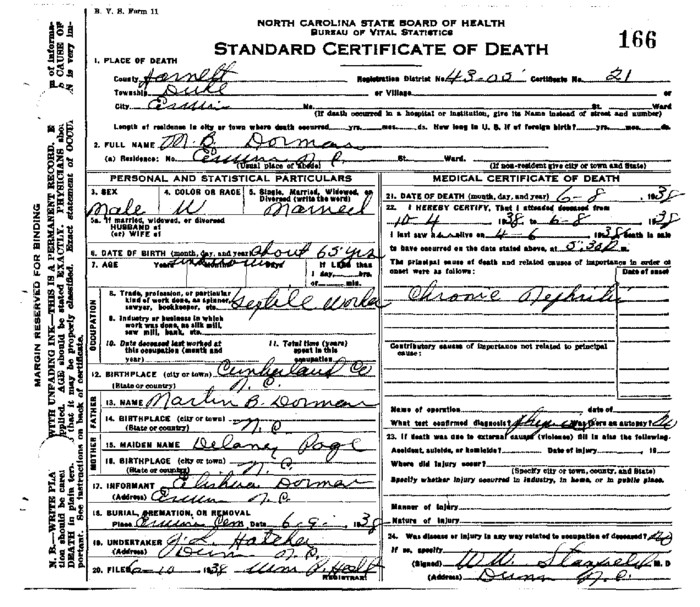 B. V. S. Form 11
NORTH CAROLINA STATE BOARD OF HEALTH
BUREAU OF VITAL STATISTICS
STANDARD CERTIFICATE OF DEATH
166
MARGIN RESERVED FOR BINDING
1. PLACE OF DEATH
County Harnett Registration District No. 43-05 Certificate No. 21
Township Duke or Village or
City Erwin No. St. Ward
(If death occurred in a hospital or institution, give its Name instead of street and number)
Length of residence in city or town where death occurred yrs. mos. ds. How long in U. S. if of foreign birth? yrs. mos. ds.
2. FULL NAME M. B. Dorman
(a) Residence: No. Erwin N. C. St. Ward.
(Usual place of abode) (If non-resident give city or town and State)
PERSONAL AND STATISTICAL PARTICULARS
3. SEX 4. COLOR OR RACE 5. Single, Married, Widowed, or Divorced (write the word)
Male W Married
5a. If married, widowed, or divorced
HUSBAND of
(or) WIFE of
6. DATE OF BIRTH (month, day, and year) About 65 yrs
7. AGE Years Months Days If LESS than
1 day, hrs.
or min.
OCCUPATION
8. Trade, profession, or particular
kind of work done, as spinner,
sawyer, bookkeeper, etc. Textile Worker
9. Industry or business in which
work was done, as silk mill,
saw mill, bank, etc.
10. Date deceased last worked at
this occupation (month and
year)
11. Total time (years)
spent in this
occupation
12. BIRTHPLACE (city or town) Cumberland Co
(State or country) N. C.
FATHER
13. NAME Martin B. Dorman
14. BIRTHPLACE (city or town) N. C
(State or country)
MOTHER
15. MAIDEN NAME Delaney Page
16. BIRTHPLACE (city or town)
(State or country) N. C.
17. INFORMANT Elishua Dorman
(Address) Erwin N. C.
18. BURIAL, CREMATION, OR REMOVAL
Place Erwin Cem. Date 6-9- 1938
19. UNDERTAKER J. L. Hatcher
(Address) Dunn N. C.
20. FILED 6-10 1938 Wm P. Holt
REGISTRAR
MEDICAL CERTIFICATE OF DEATH
21. DATE OF DEATH (month, day, and year) 6-8, 1938
22. I HEREBY CERTIFY, That I attended deceased from
10-4 1938 to 6-8, 1938
I last saw h alive on 4-6 1938 death is said
to have occurred on the date stated above, at 5:30 P. m.
The principal cause of death and related causes of importance in order of
onset were as follows: Date of onset
Chronic Nephritis
Contributory causes of importance not related to principal
cause:
Name of operation date of
What test confirmed diagnosis? Was there an autopsy? No
23. If death was due to external causes (violence) fill in also the following:
Accident, suicide, or homicide? Date of injury 19
Where did injury occur?
(Specify city or town, county, and State)
Specify whether injury occurred in industry, in home, or in public place.
Manner of injury
Nature of injury
24. Was disease or injury in any way related to occupation of deceased? No
If so, specify
(Signed) W W Stanfield M. D
(Address) Dunn N. C.